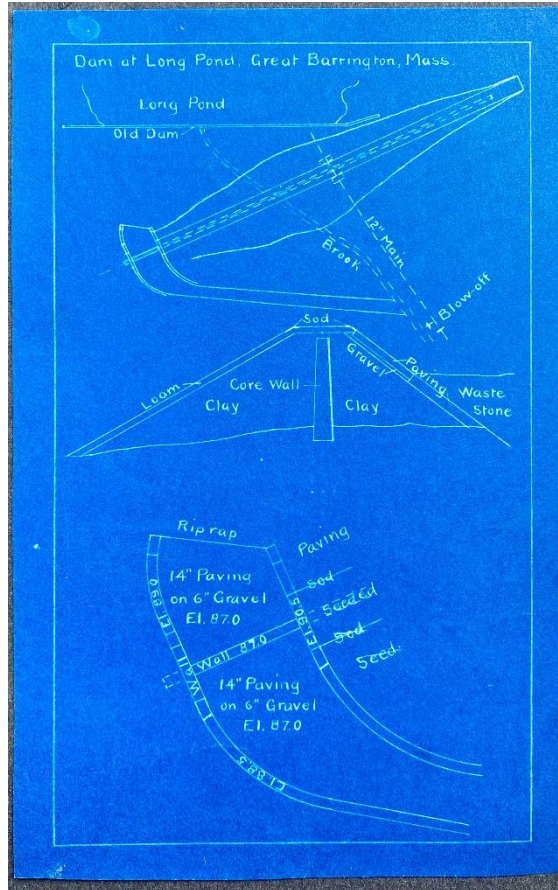 Dam at Long Pond, Great Barrington, Mass.
Long Pond
Old Dam
12" Main
Brook
Blow-off
Sod
Gravel
Paving
Loam
Core Wall
Clay
Clay
Waste
Stone
Riprap
Paving
14" Paving
on 6" Gravel
El. 87.0
Sod
Seeded
Sod
Seed
El. 90.5
Wall 89.0
Wall
14" Paving
on 6" Gravel
El. 87.0
El. 88.5